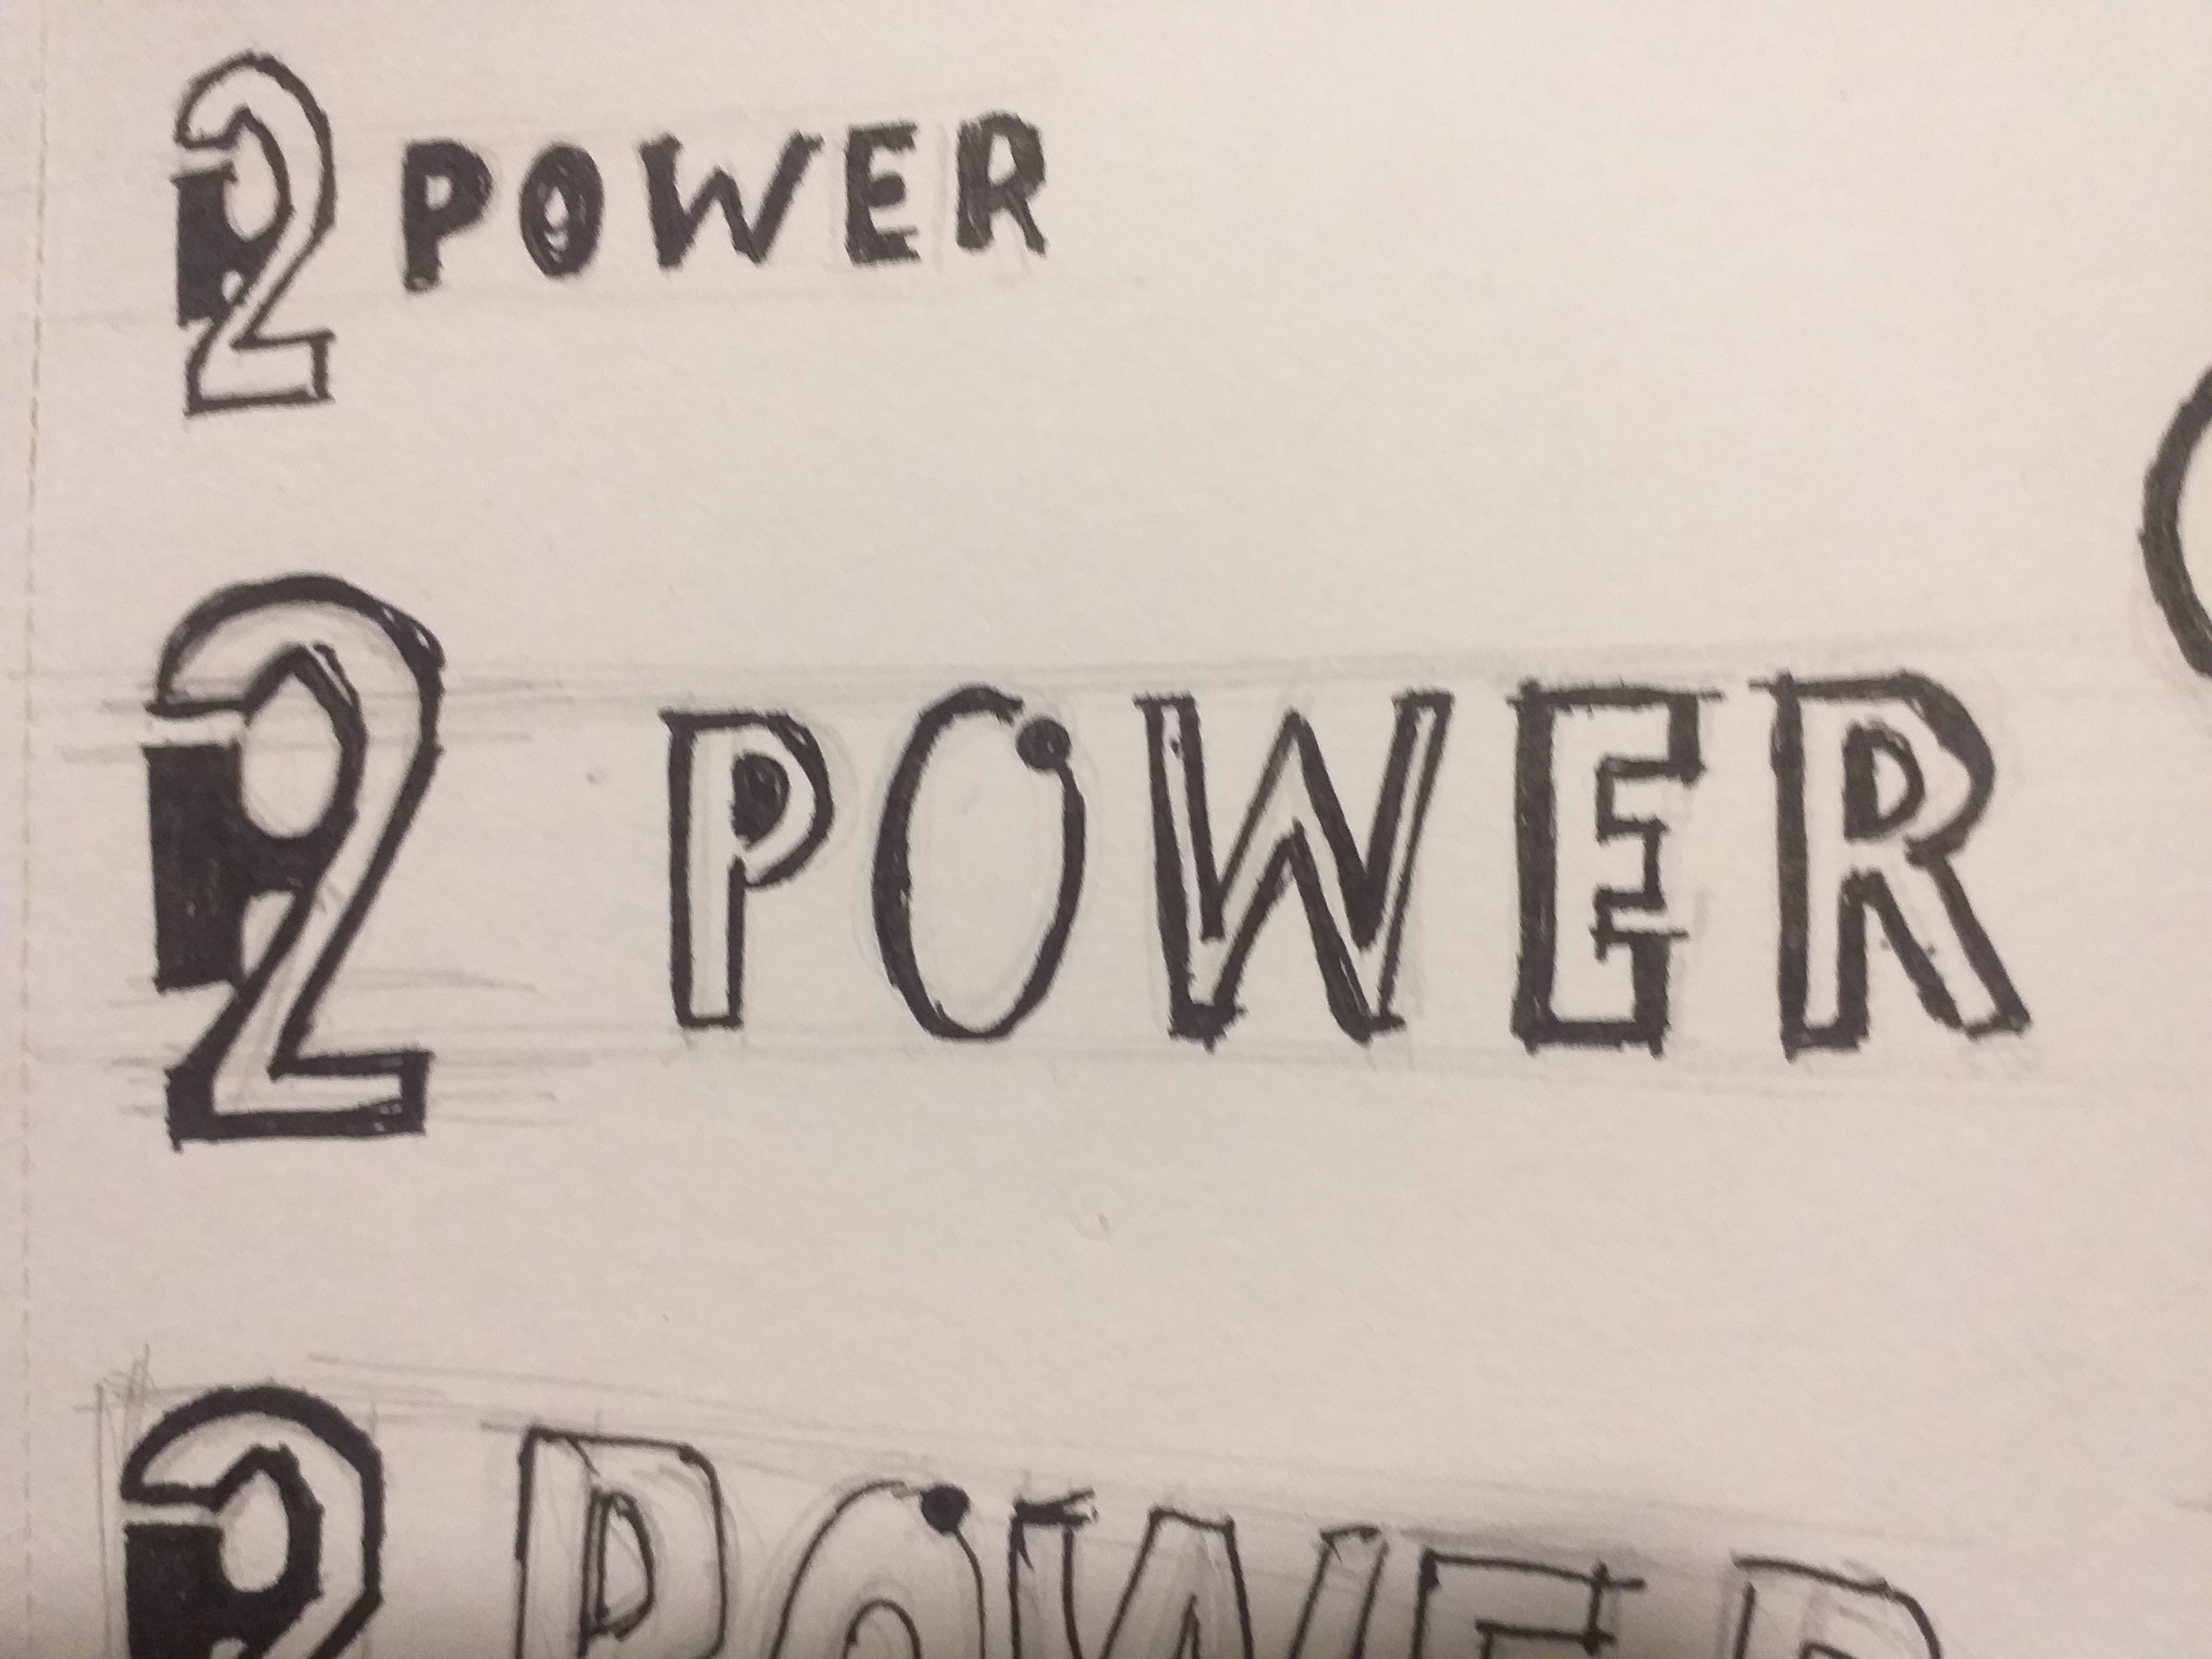 2 POWER
2 POWER
2 POWER